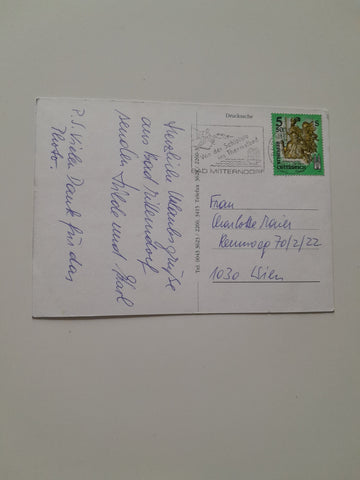 Herzliche Urlaubsgrüße
aus Bad Mitterndorf
senden Hilde und Karl
P.S. Vielen Dank für das
Foto.
Drucksache
Von der Schipiste
ins Thermalbad
BAD MITTERNDORF
5
S
REPUBLIK
ÖSTERREICH
Frau
Charlotte Maier
Rennweg 70/2/22
1030 Wien